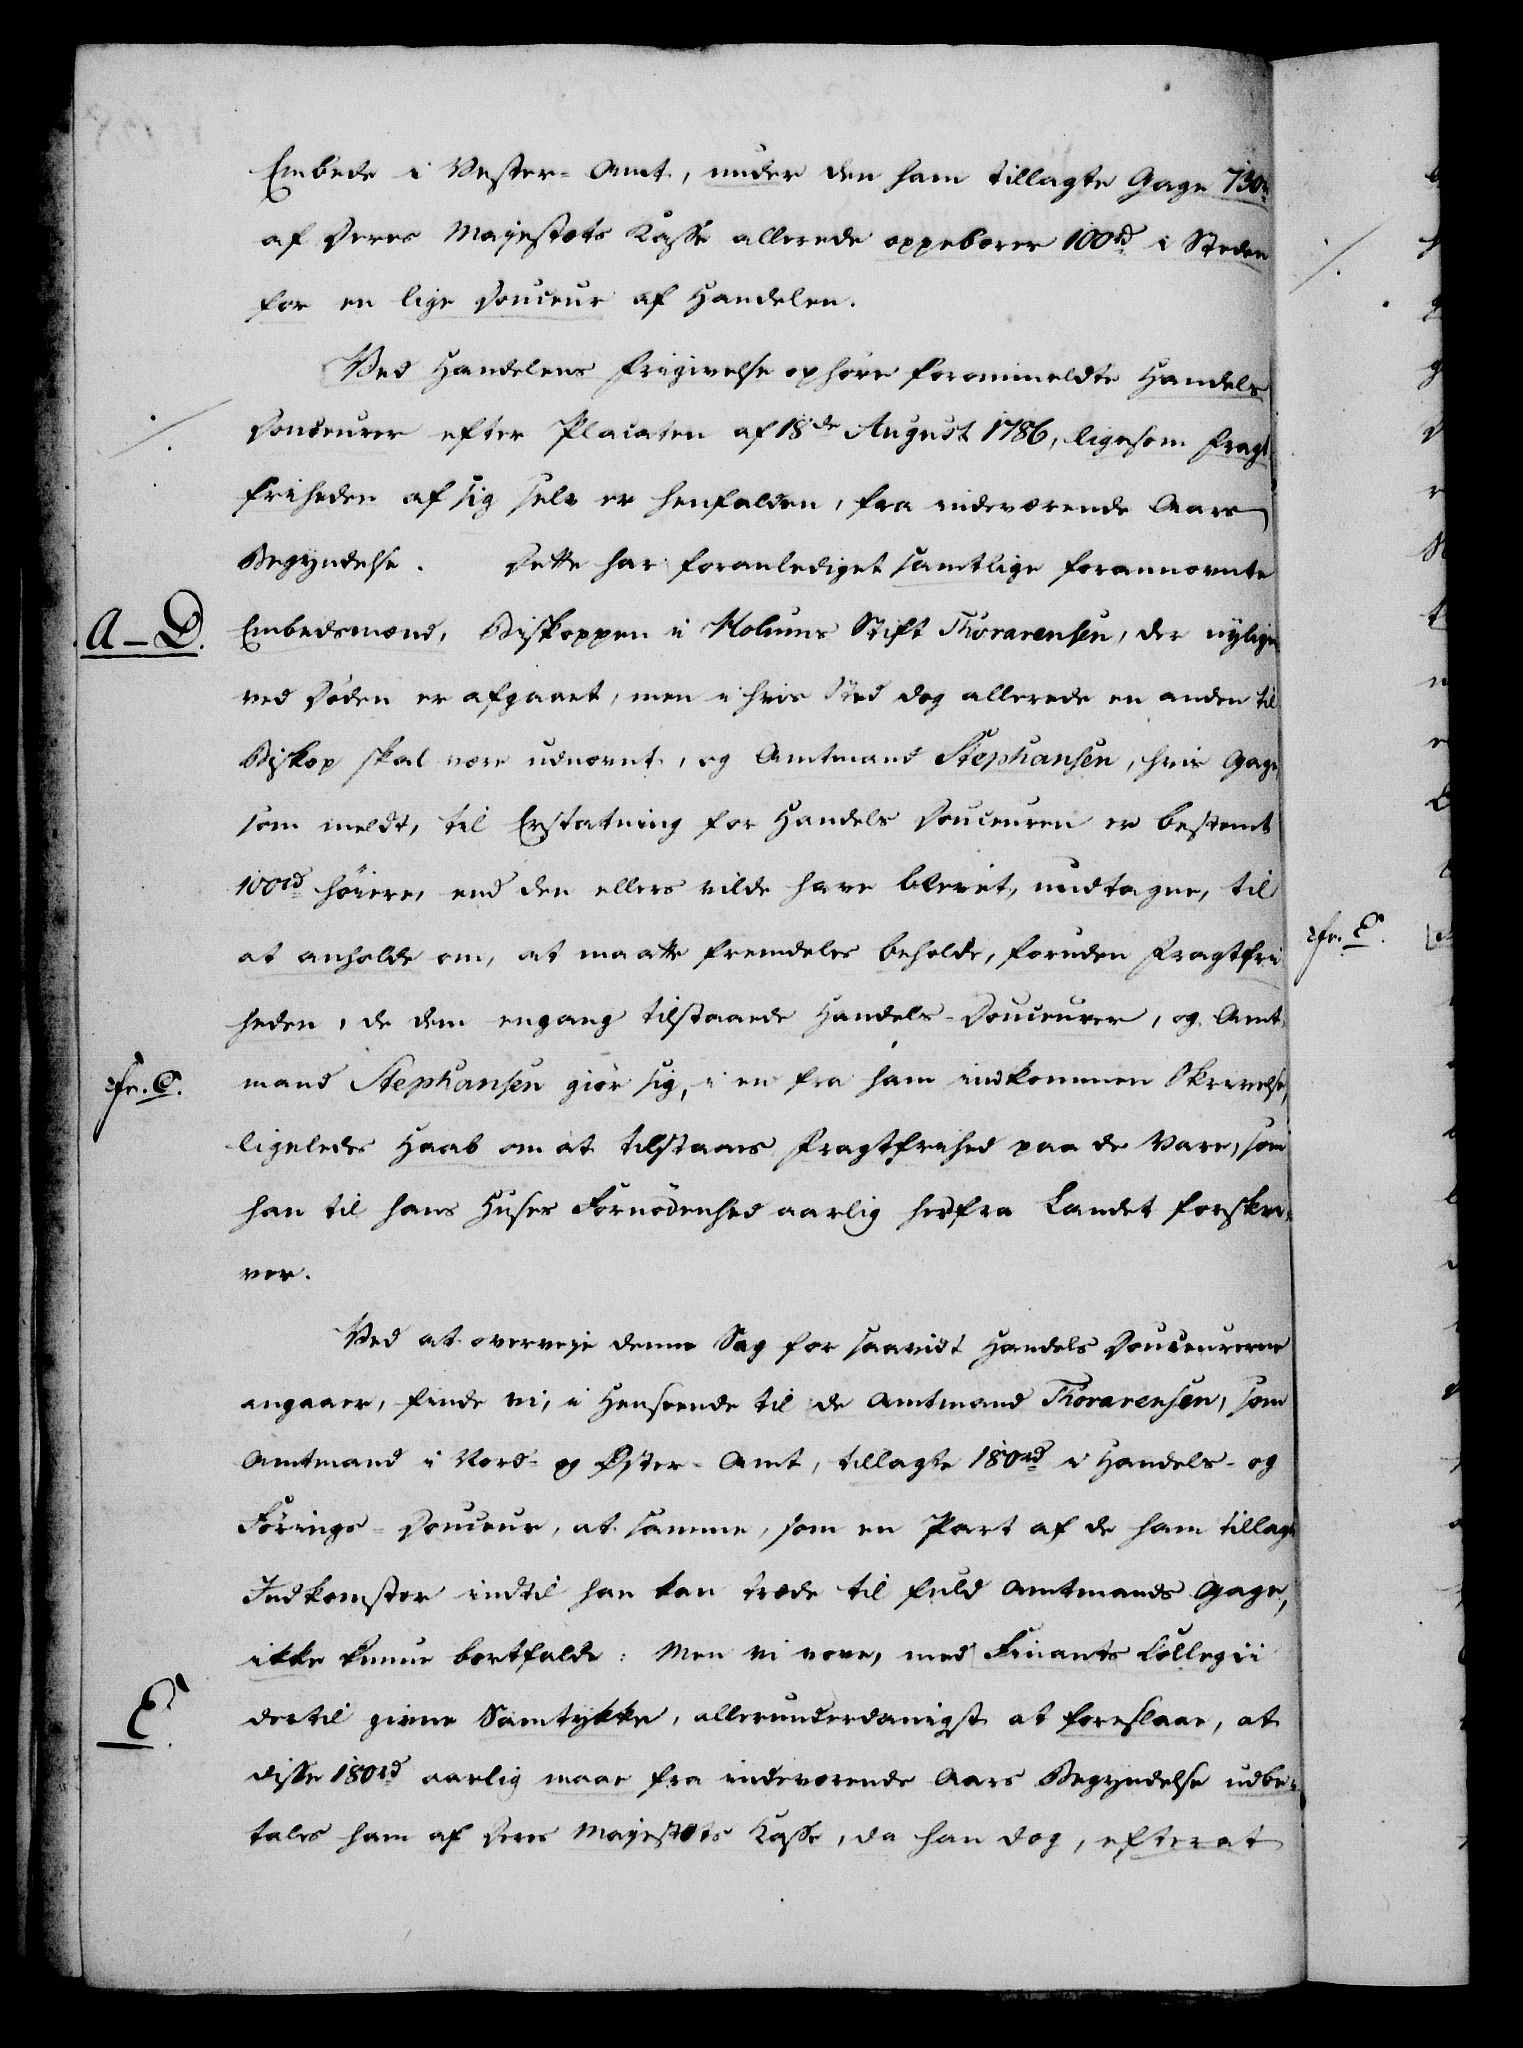 Embede i Vester-Amt, under den ham tillagte Gage 730rd
af Deres Majestæts Kasse allerede oppebærer 100rd i Steden
for en lige Douceur af Handelen.
Ved Handelens Frigivelse ophøre forommeldte Handels
Douceurer efter Placaten af 18de August 1786, ligesom Fragt
friheden af sig selv er henfalden, fra indeværende Aars
Begyndelse. Dette har foranlediget samtlige forannævnte
A-D.
Embedsmænd, Biskoppen i Holums Stift Thorarensen, der nylig
ved Døden er afgaaet, men i hvis Sted dog allerede en anden til
Biskop skal være udnævnt, og Amtmand Stephansen, hvis Gage
som meldt, til Erstatning for Handels Douceuren er bestemt
100rd høiere, end den ellers vilde have blevet, undtagne, til
at anholde om, at maatte fremdeles beholde, foruden Fragtfri
cfr. E.
heden, de dem engang tilstaaede Handels-Douceurer, og Amt-
cfr. C.
mand Stephansen giør sig, i en fra ham indkommen Skrivelse,
ligeledes Haab om at tilstaaes Fragtfrihed paa de Vare, som
han til hans Huses Fornødenhed aarlig herfra Landet forskri-
ver.
Ved at overveje denne Sag for saavidt Handels Douceurerne
angaaer, finde vi, i Henseende til de Amtmand Thorarensen, som
Amtmand i Nord- og Øster-Amt, tillagte 180rd i Handels- og
Førings-Douceur, at samme, som en Part af de ham tillagte
Indkomster indtil han kan træde til fuld Amtmands Gage,
ikke kunne bortfalde: Men vi vove, med Finants Collegii
E.
dertil givne Samtykke, allerunderdanigst at foreslaae, at
disse 180rd aarlig maae fra indeværende Aars Begyndelse udbe-
tales ham af Deres Majestæts Kasse, da han dog, efterat